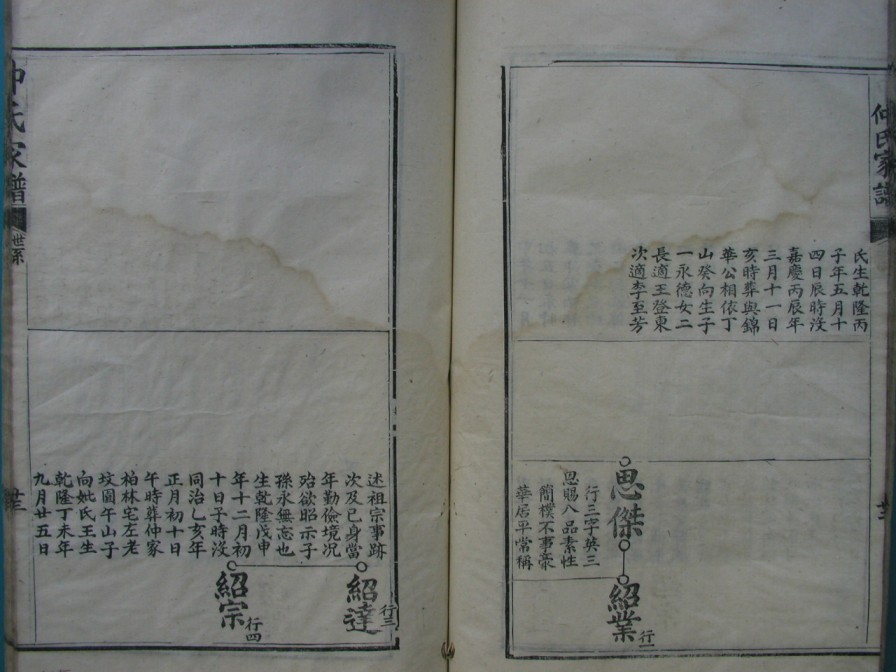 仲氏家譜
氏生乾隆丙
子年五月十
四日辰時沒
嘉慶丙辰年
三月十一日
亥時葬與錦
華公相依丁
山癸向生子
一永德女二
長適王登東
次適李至芳
思傑
行三字英三
恩賜八品素性
簡樸不事豪
華居平常稱
紹業
行一
述祖宗事跡
次及已身當
年勤儉境況
殆欲昭示子
孫永無忘也
生乾隆戊申
年十二月初
十日子時沒
同治乙亥年
正月初十日
午時葬仲家
柏林宅左老
坟園午山子
向妣氏王生
乾隆丁未年
九月廿五日
紹達
行三
紹宗
行四
仲氏家譜
世系